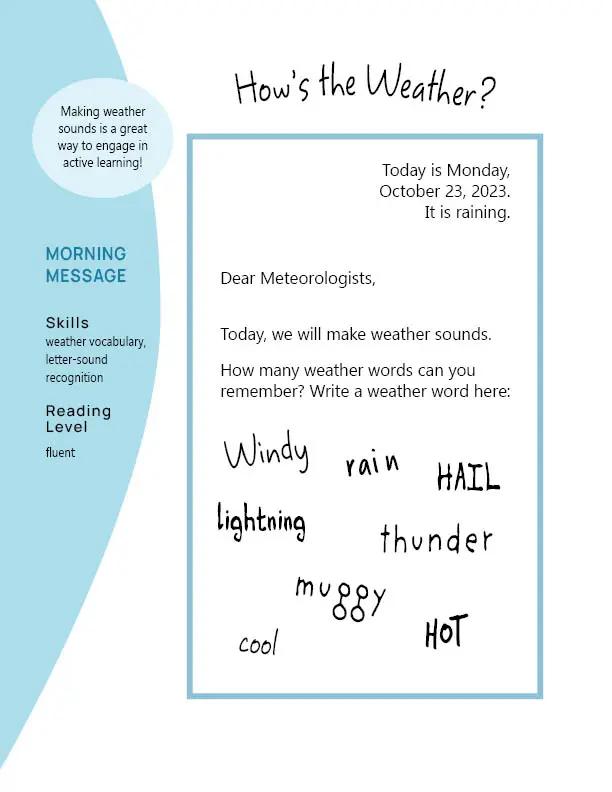 How's the Weather?
Making weather
sounds is a great
way to engage in
active learning!
MORNING
MESSAGE
Skills
weather vocabulary,
letter-sound
recognition
Reading
Level
fluent
Today is Monday,
October 23, 2023.
It is raining.
Dear Meteorologists,
Today, we will make weather sounds.
How many weather words can you
remember? Write a weather word here:
Windy rain HAIL
lightning thunder
muggy
cool HOT